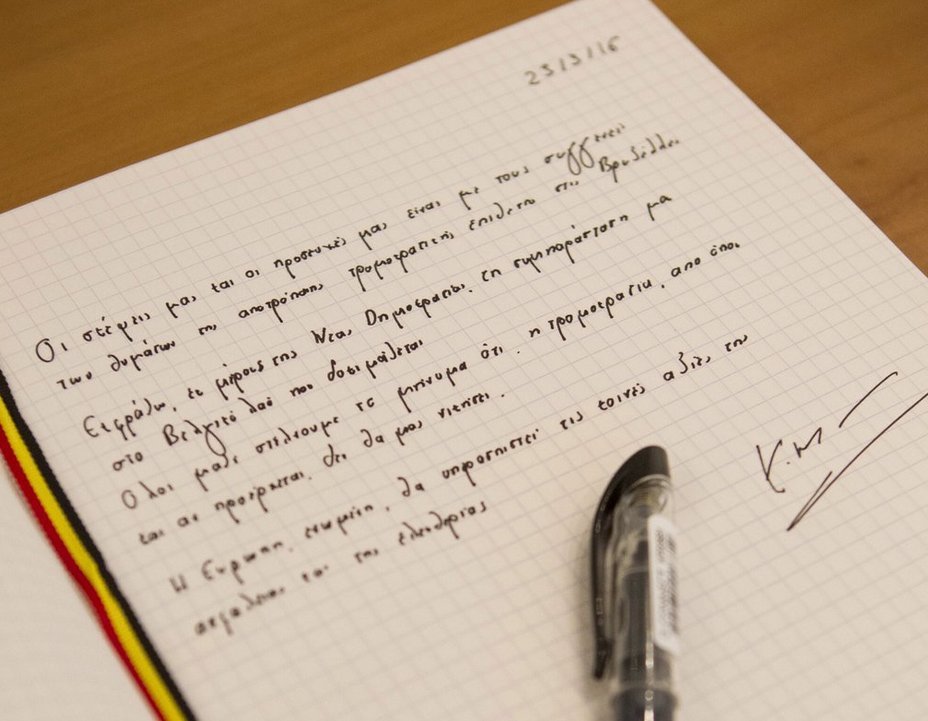 23/3/16
Οι σκέψεις μας και οι προσευχές μας είναι με τους συγγενείς
των θυμάτων της αποτρόπαιης τρομοκρατικής επίθεσης στις Βρυξέλλες
Εκφράζω, εκ μέρους της Νέας Δημοκρατίας, τη συμπαράσταση μα
στο Βελγικό λαό που δοκιμάζεται
Όλοι μαζί στέλνουμε το μήνυμα ότι η τρομοκρατία, από όπου
και αν προέρχεται, δεν θα μας νικήσει.
Η Ευρώπη, ενωμένη, θα υπερασπιστεί τις κοινές αξίες της
ασφάλειας και της ελευθερίας
Κ.Μ